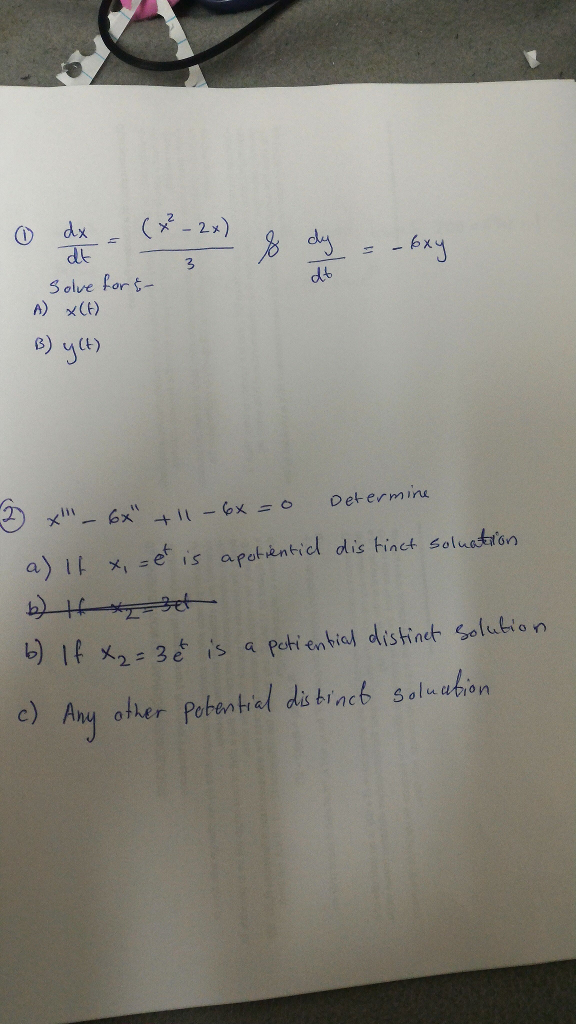 ① dx/dt = (x² - 2x)/3 & dy/dt = - 6xy
Solve for :-
A) x(t)
B) y(t)
② x''' - 6x'' + 11 - 6x = 0 Determine
a) If x₁ = eᵗ is apotientid distinct soluation
b) If x₂ = 3et
b) If x₂ = 3eᵗ is a potiential distinct solution
c) Any other potential distinct soluation